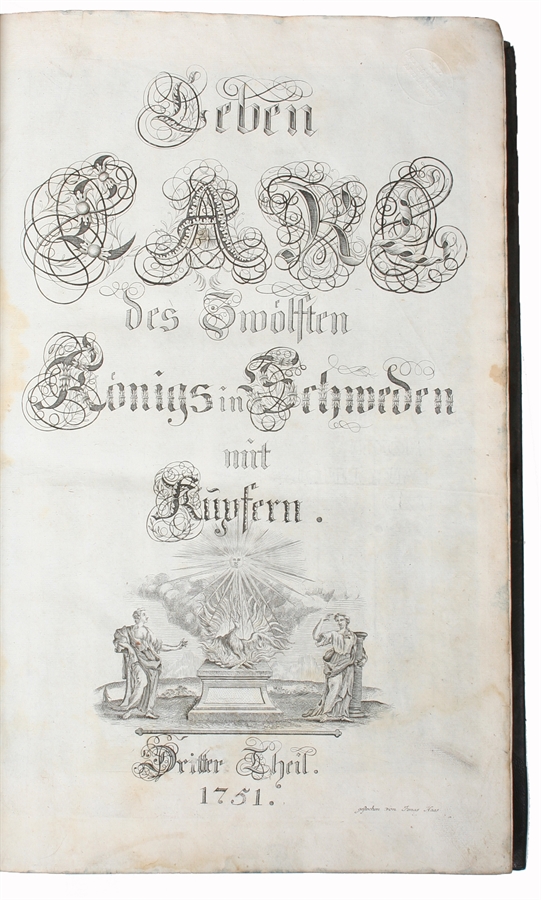 Leben
CARL
des Zwölfften
Königs in Schweden
mit
Kupfern.
Dritter Theil.
1751.
gestochen von Jonas Haas